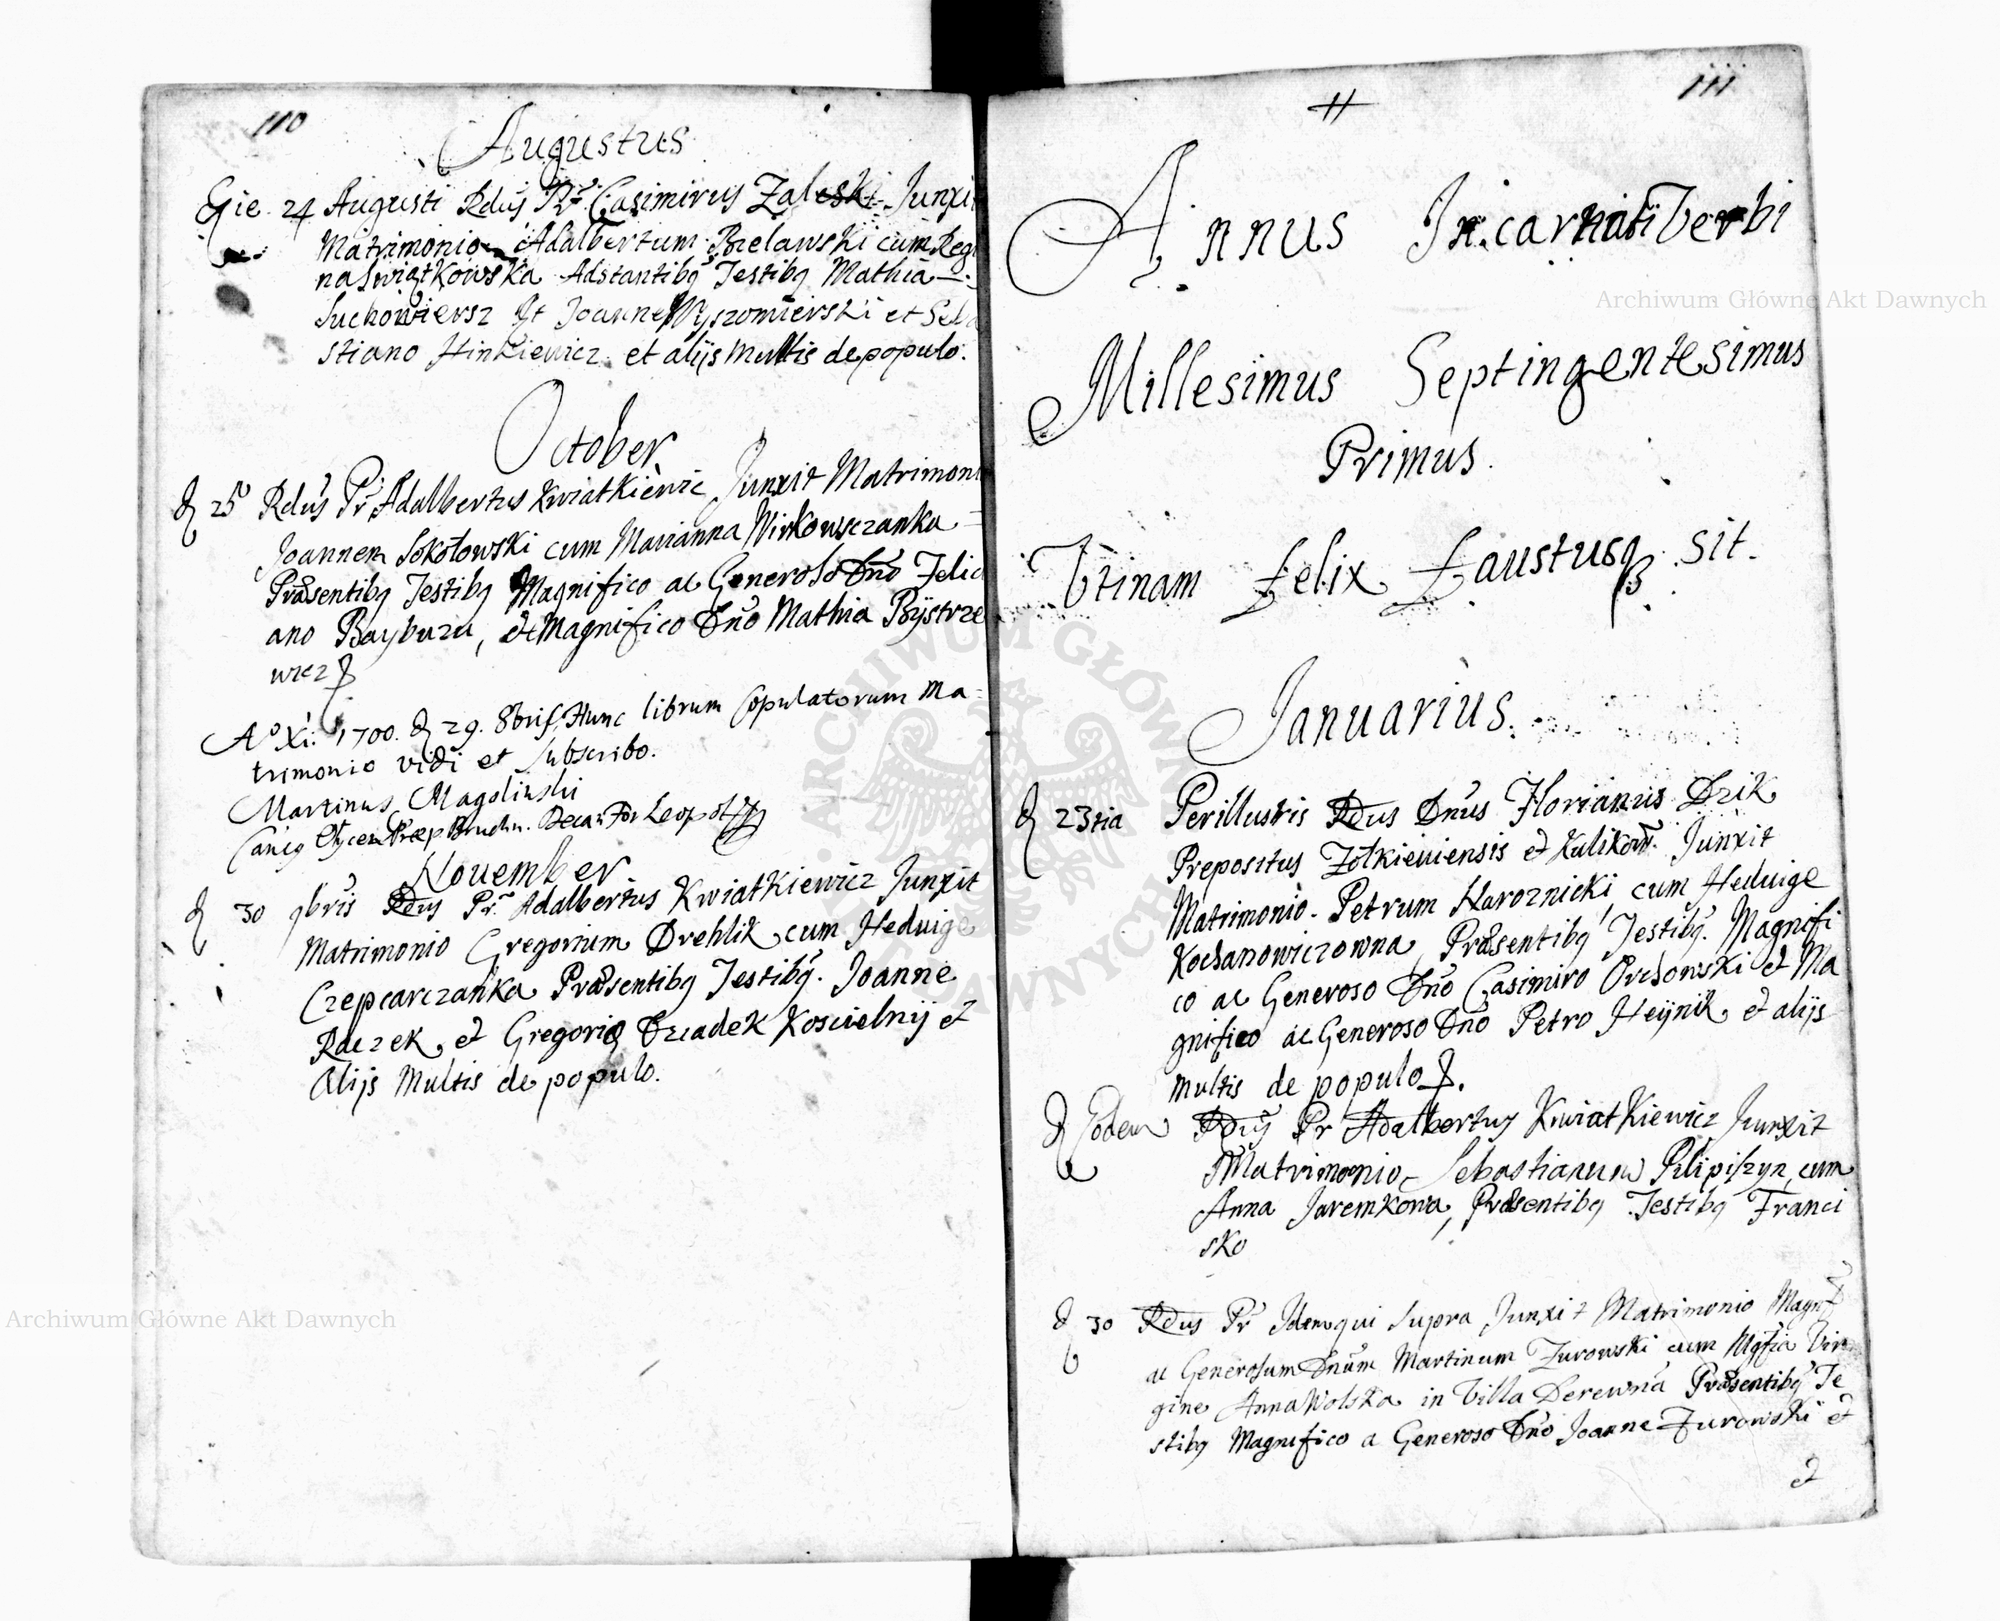 110
Augustus
Die 24 Augusti Rdus Pr. Casimirus Zaleski Junxit
Matrimonio Adalbertum Bielawski cum Regi
na Swiątkowska Adstantibq Testibq Mathia
Suchowiersz Et Joanne Wyszomierski et Seba
stiano Hinkiewicz et alijs Multis de populo.
October
d 25 Rdus Pr Adalbertus Kwiatkiewic Junxit Matrimoni
Joannem Sokołowski cum Marianna Wirkowsczanka
Præsentibq Testibq Magnifico ac Generoso Dno Felici
ano Baybuza, et Magnifico Dno Mathia Bystrze
wicz
Ao Xi. 1700. d 29. 8bris Hunc librum Copulatorum Ma
trimonio vidi et subscribo.
Martinus Magolinski
November
d 30 9bris Rdus Pr. Adalbertus Kwiatkiewicz Junxit
Matrimonio Gregorium Drehlik cum Heduige
Czepcarczanka Præsentibq Testibq. Joanne
Raczek et Gregorio Dziadek Koscielnij et
Alijs Multis de populo.
111
Annus Incarnati Verbi
Millesimus Septingentesimus
Primus.
Vtinam Felix Faustusq sit.
Januarius.
d 23tia Perillustris Rdus Dnus Florianus Dzik
Prepositus Zołkieuiensis et Kulikow. Junxit
Matrimonio. Petrum Haroznicki, cum Heduige
Kochanowiczowna, Præsentibq Testibq. Magnifi
co ac Generoso Dno Casimiro Orchowski et Ma
gnifico ac Generoso Dno Petro Heynik et alijs
multis de populo.
d Eodem Rdus Pr Adalbertus Kwiatkiewicz Junxit
Matrimonio Sebastianum Pilipiszyn, cum
Anna Jaremkowa, Præsentibq Testibq Franci
sko
d 30 Rdus Pr Idem qui Supra Junxit Matrimonio Magnif
ac Generosum Dnum Martinum Zurowski cum Mgfia Vir
gine Anna Wolska in Villa Derewna Præsentibq Te
stibq Magnifico a Generoso Dno Joanne Zurowski et
Archiwum Główne Akt Dawnych
Archiwum Główne Akt Dawnych
ARCHIWUM GŁÓWNE AKT DAWNYCH